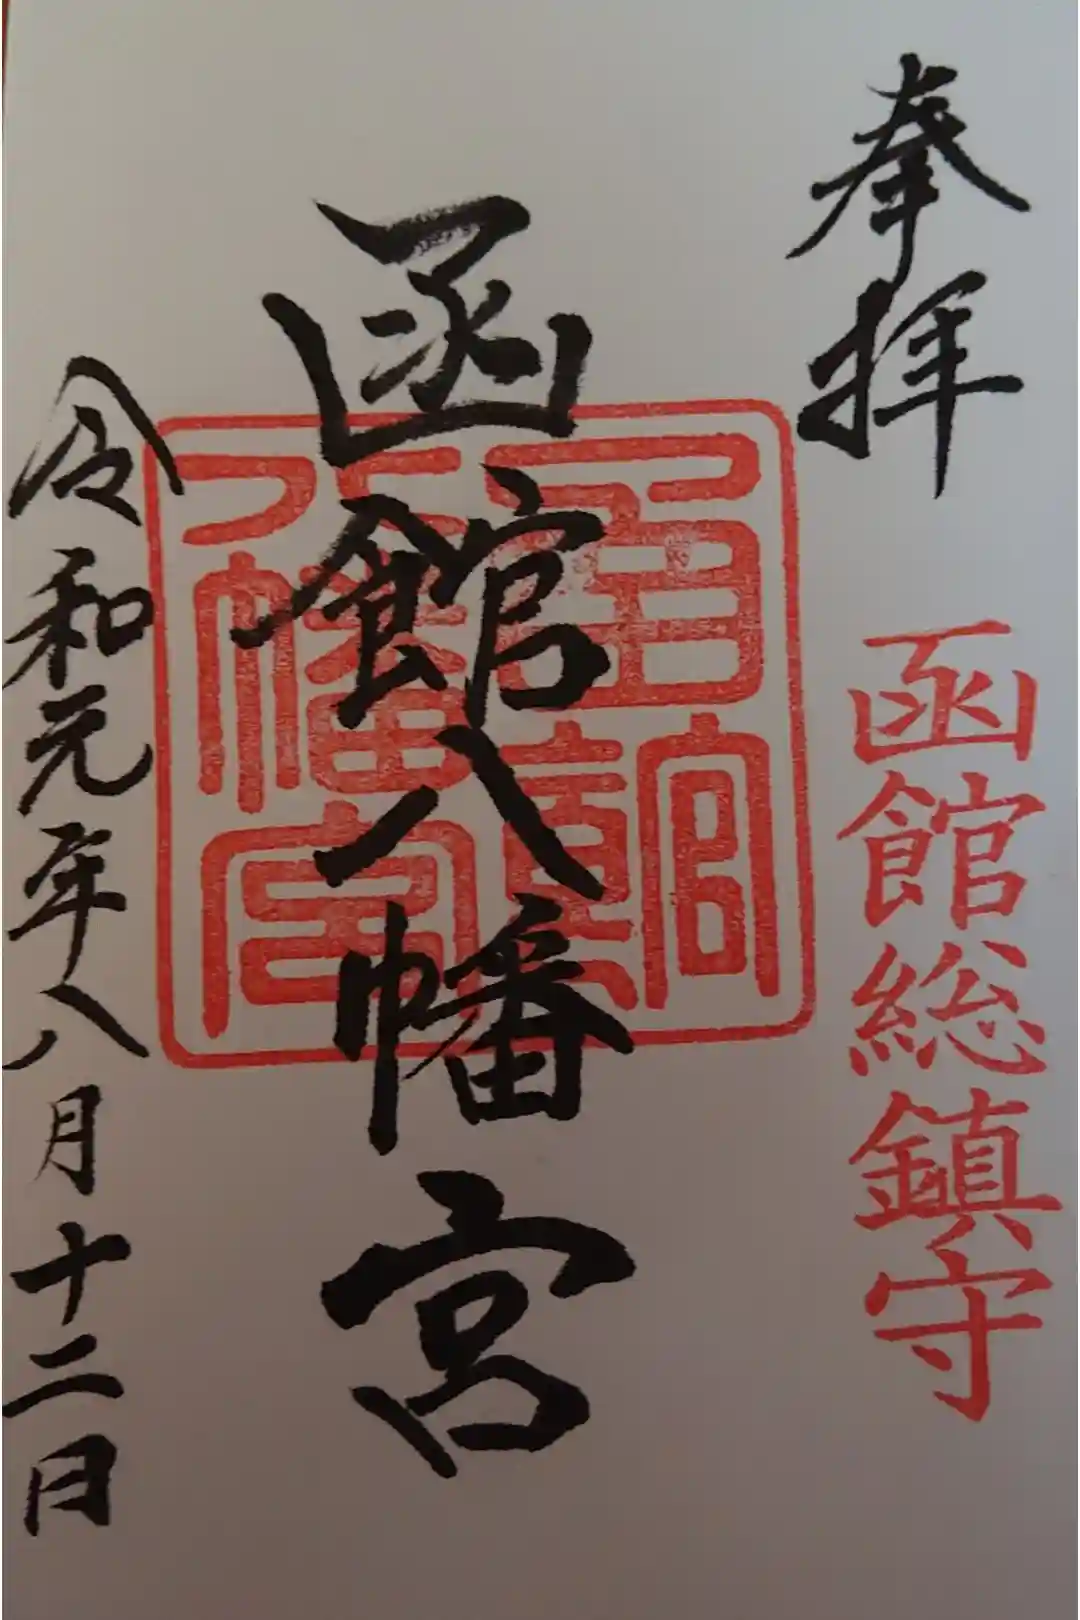 奉拝
函館総鎮守
函館八幡宮
令和元年八月十二日